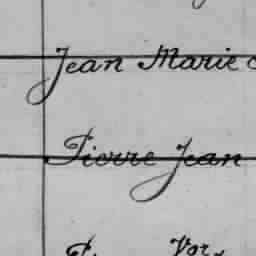 Jean Marie
Pierre Jean